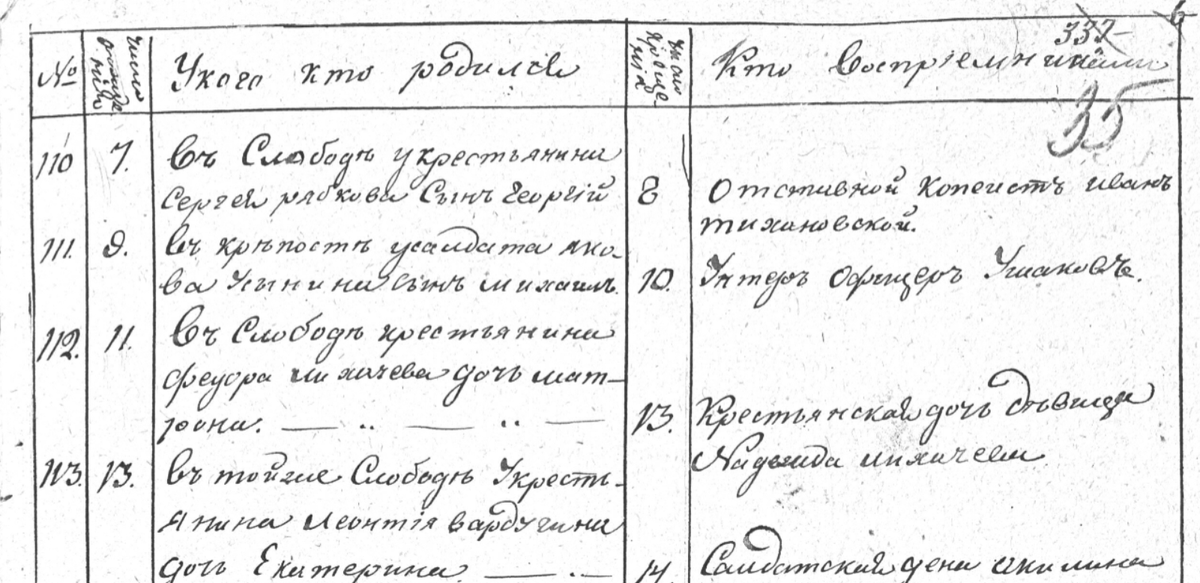 337
6
35
№
Число рожде ния
У кого кто родился
Число креще ния
Кто восприемниками
110
7.
Въ Слободѣ у крестьянина
Сергея рябкова Сынъ Георгій
8
Отставной копеистъ иванъ
тихановской.
111.
9.
въ крѣпостѣ у салдата яко-
ва Усынина Сынъ михаилъ.
10.
Унтеръ офицеръ Ушаковъ.
112.
11.
Въ Слободѣ крестьянина
феудора михачева дочь мат-
рона.
13.
Крестьянская дочь дѣвица
Надежда михачеем
113.
13.
въ тойже Слободѣ У кресть-
янина Леонтія вардугина
дочь Екатерина.
14.
Салдатская жена акилина